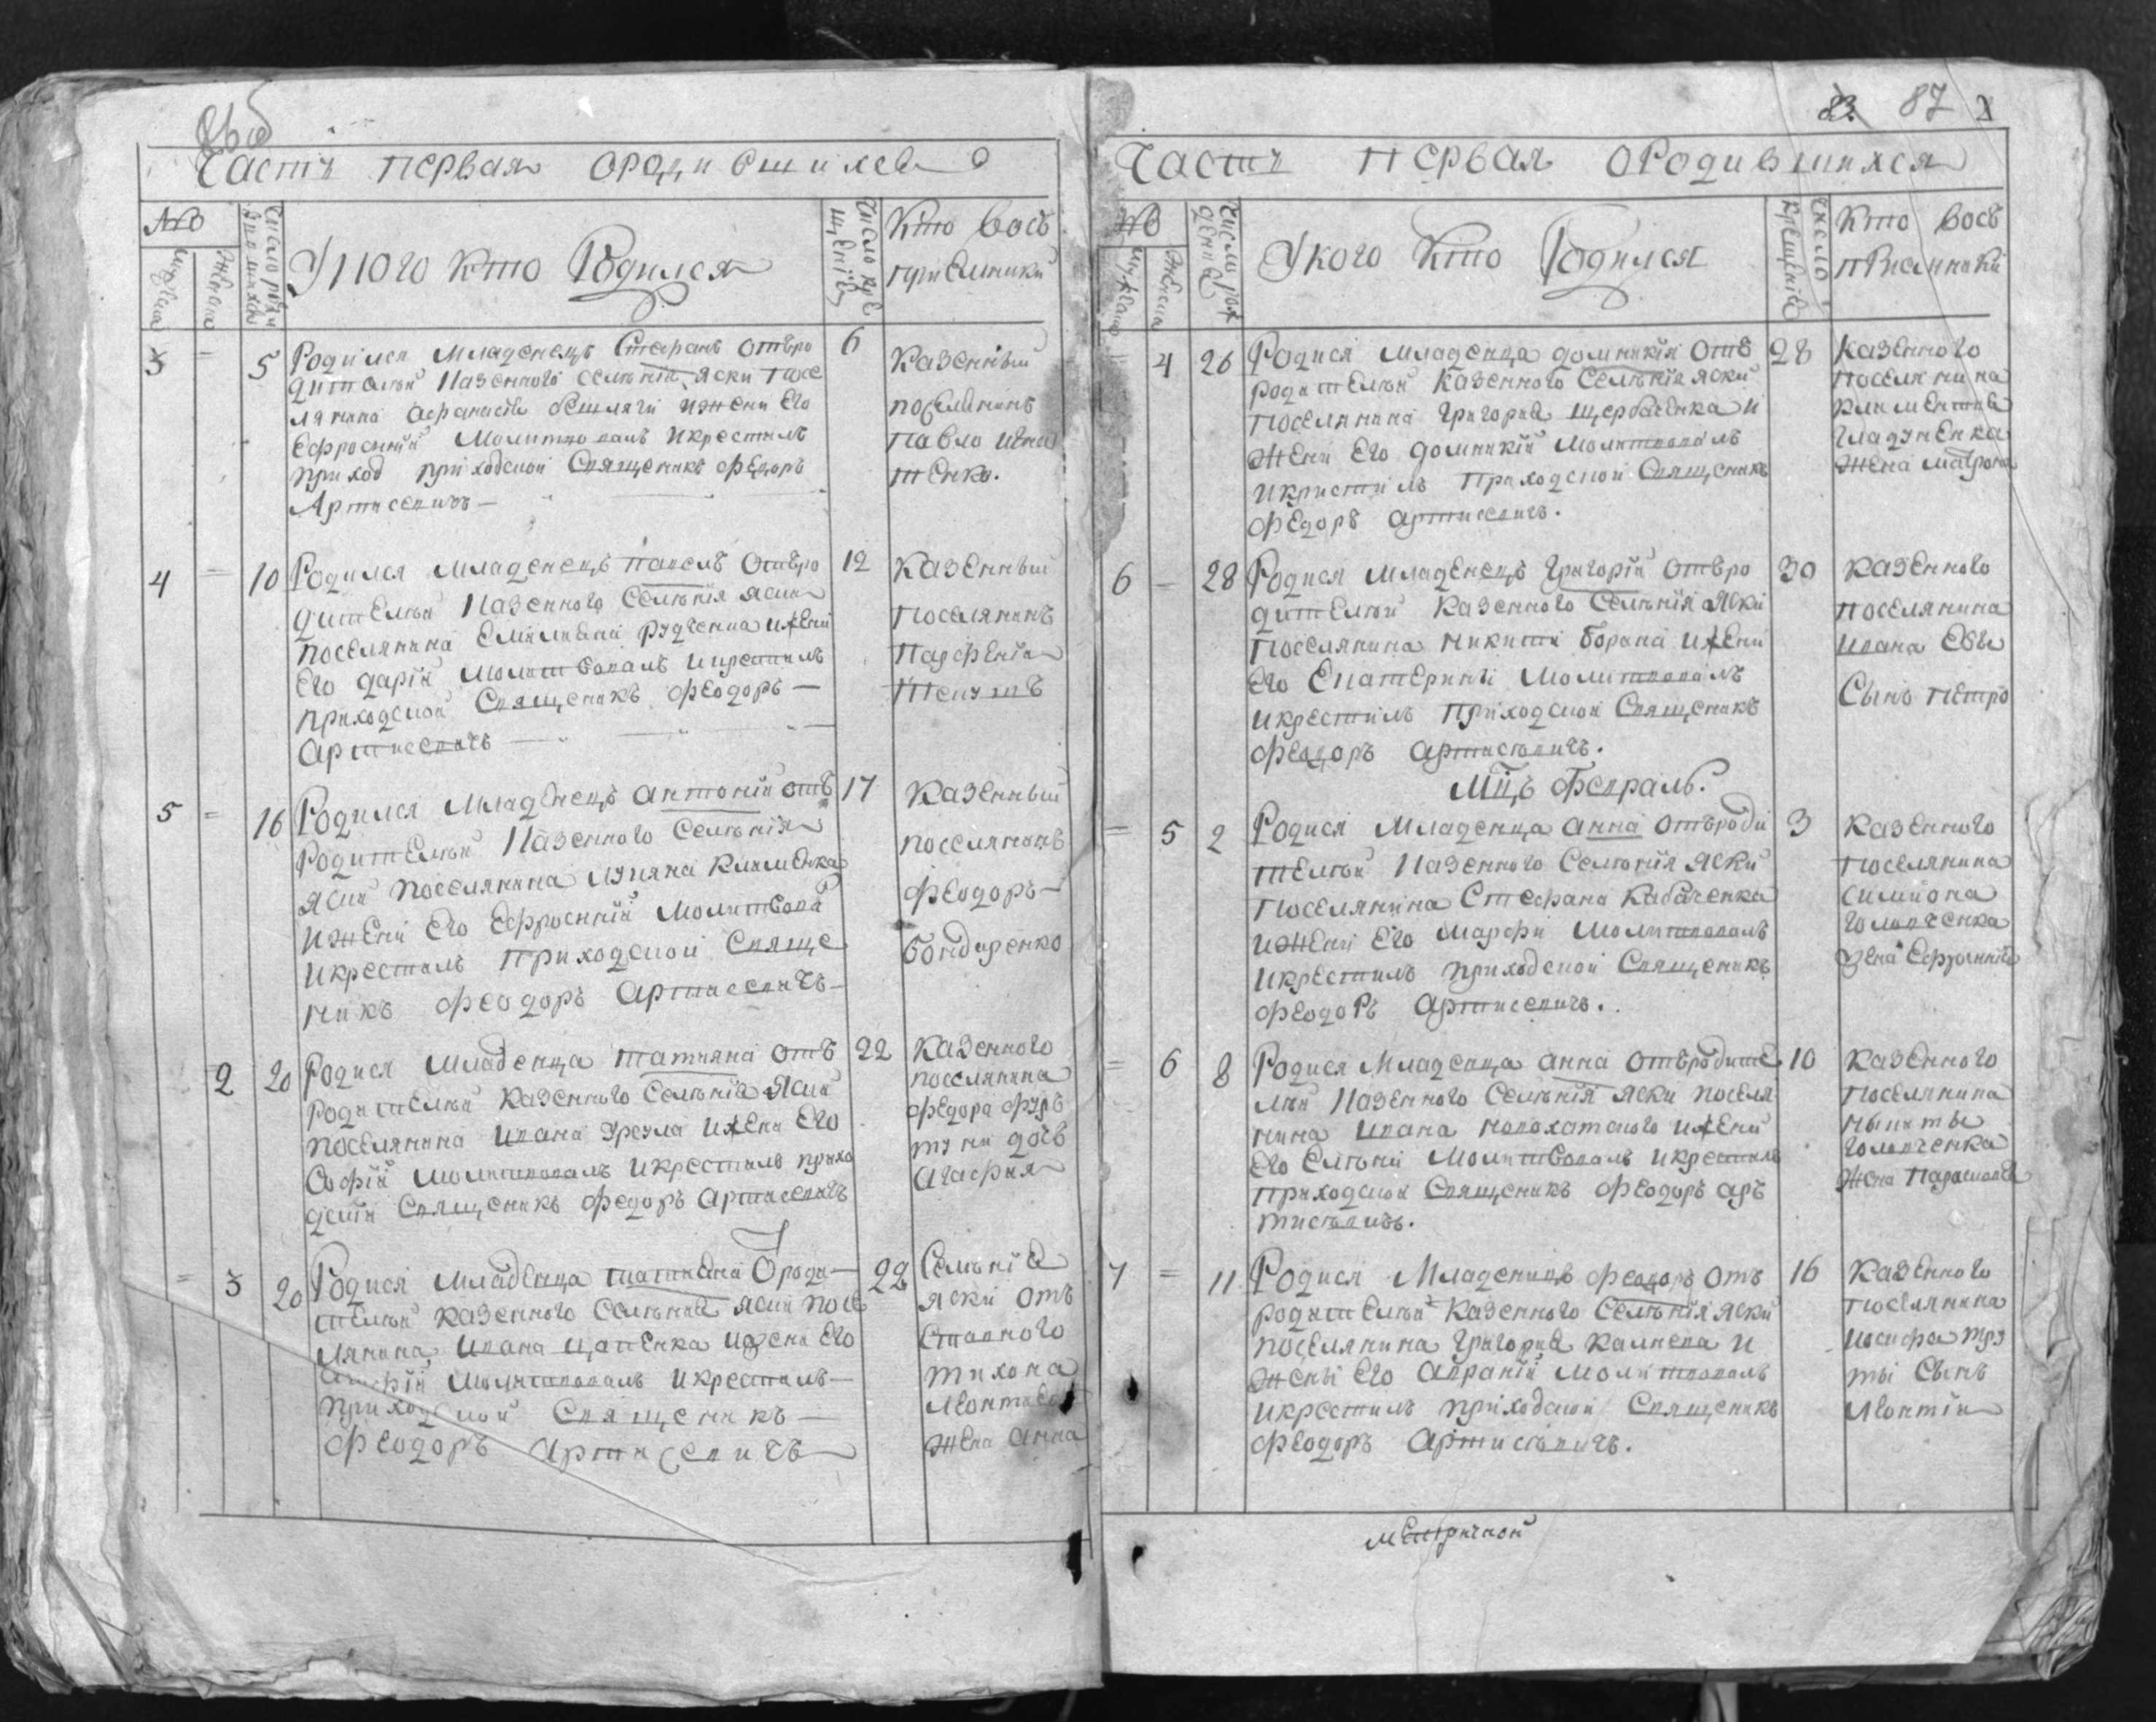 86об
Часть первая ородившихся
№
Мужеска
Женска
Число
У ного кто Родился
Число кре
щенія
Кто вось
пріемники
3 = 5 Родился Младенець Стефань отьро 6
дителъй Казенного селънія Яски посе
лянина Афанасія ижени Его
Ефросиніи Молитвовалъ икрестилъ
приход приходской Священикъ Федоръ
Артисевичъ —
Казенный
поселянинъ
Павло
4 = 10 Родился Младенець Павелъ Отьро 12
дителъй Казенного Селънія Яски
поселянина Емиліана Рудченка иЖени
Его Даріи Молитвовалъ икрестилъ
приходской Священикъ Феодоръ —
Артисевичъ —
Казенный
Поселянинъ
Парфеній
5 = 16 Родился Младенець Антоній отъ 17
Родителъй Казенного Селънія
Яски Поселянина Лукяна Клименка
ижени Его Ефросиніи Молитвова
икрестилъ Приходской Свяще
никъ Феодоръ Артисевичъ —
Казенный
поселянинъ
Феодоръ —
Бондаренко
2 20 Родися Младенца Татияна отъ 22
Родителъй Казенного Селънія Яски
поселянина Ивана Урсула иЖени Его
Софіи Молитвовалъ икрестилъ прихо
дскій Священикъ Федоръ Артисевичъ
Казенного
поселянина
Федора Фур
туни дочь
Агафия
= 3 20 Родися Младенца Татиана Ороди — 22
телъй казенного Селъния Яски посе
лянина Ивана Цапенка ижени Его
Молитвовалъ икрестилъ —
приходской Священикъ —
Феодоръ Артисевичъ
Селънія
Яски отъ
Ставного
Тихона
Леонтиева
Жена Анна
83 87
Часть первая ородившихся
№
Мужеска
Женска
Число рож
дения
Укого Кто Родился
Число
крещения
Кто вось
приемники
= 4 26 Родися Младенца Домникія отъ 28
родителъй казенного Селънія Яски
поселянина Григория Щербаченка и
Жени Его Домникіи Молитвовалъ
икристилъ Приходской Священикъ
Федоръ Артисевичъ.
Казенного
поселянина
Климентия
Гладуненка
Жена Матрона
6 — 28 Родися Младенець Григорій Отьро 30
дителъй Казенного Селънія Яски
Поселянина Никити Борана иЖени
Его Екатерини Молитвовалъ
икрестилъ Приходской Священикъ
Феодоръ Артисевичъ.
Казенного
поселянина
Ивана
Сынъ Петро
Мцъ Февраль.
= 5 2 Родися Младенца Анна Отьроди 3
телъй Казенного Селънія Яски
Поселянина Стефана Кабаченка
иЖени Его Марфи Молитвовалъ
икрестилъ приходской Священикъ
Феодоръ Артисевичъ.
Казенного
Поселянина
Симиона
Головченка
жена Ефросиния
= 6 8 Родися Младенца Анна Отьродите 10
лъй Казенного Селънія Яски поселя
нина Ивана Новохатского иЖени
Его Елъни Молитвовалъ икрестилъ
Приходской Священикъ Феодоръ Арь
тисевичъ.
Казенного
Поселянина
Никиты
Головченка
Жена Параскева
7 = 11 Родися Младенецъ Феодоръ Отъ 16
родителъй Казенного Селънія Яски
поселянина Григория Калнева и
Жены Его Молитвовалъ
икрестилъ приходской Священикъ
Феодоръ Артисевичъ.
Казенного
поселянина
Иосифа
Сынъ
Леонтій
Метричной